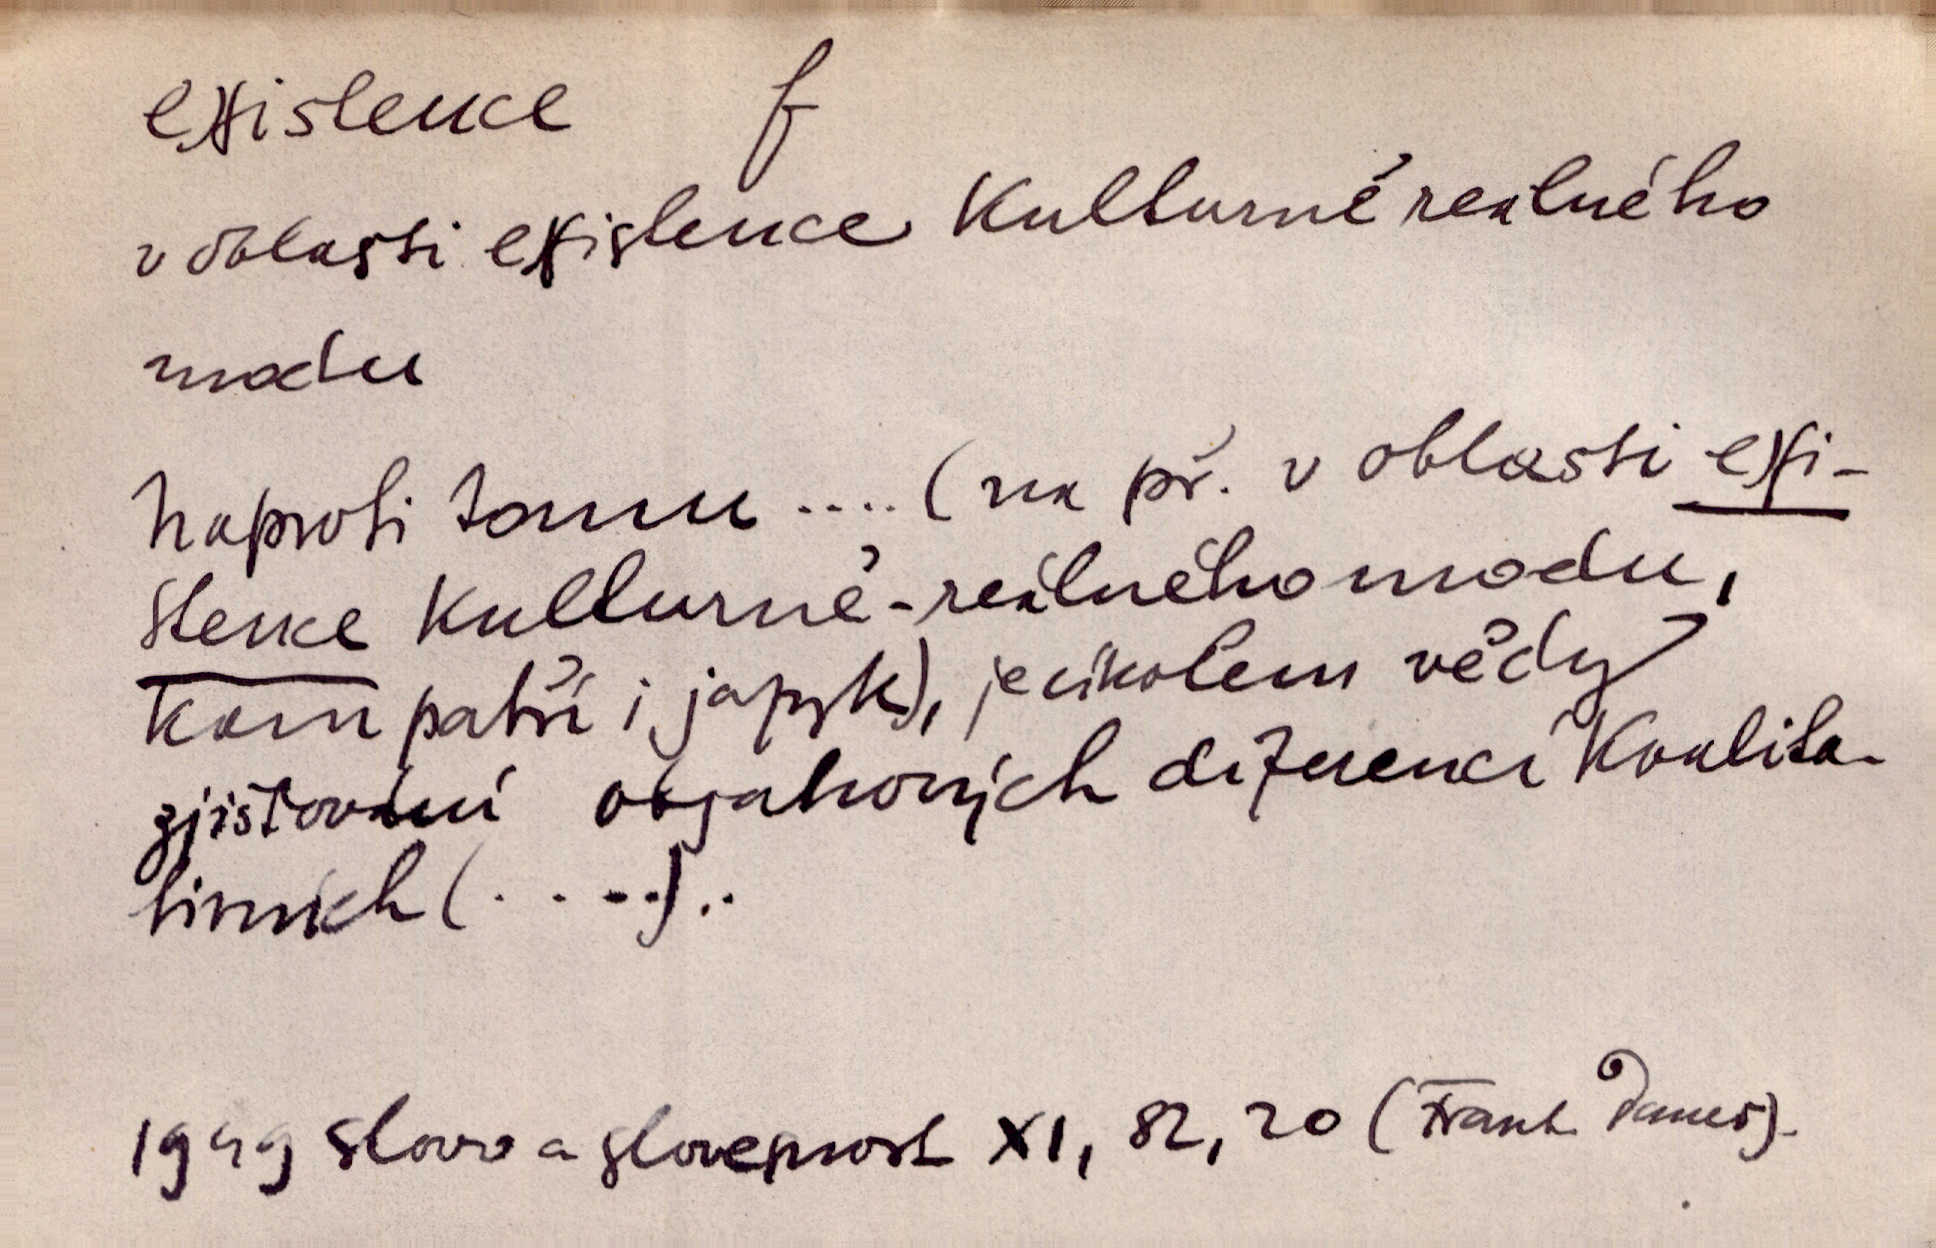 existence f
v oblasti existence kulturně reálného
modu
naproti tomu .... (na př. v oblasti exi-
stence kulturně-reálného modu,
kam patří i jazyk), je úkolem vědy
zjišťování obsahových diferencí kvalita-
tivních (.....)..
1949 Slovo a slovesnost XI, 82, 20 (Frant. Daneš).